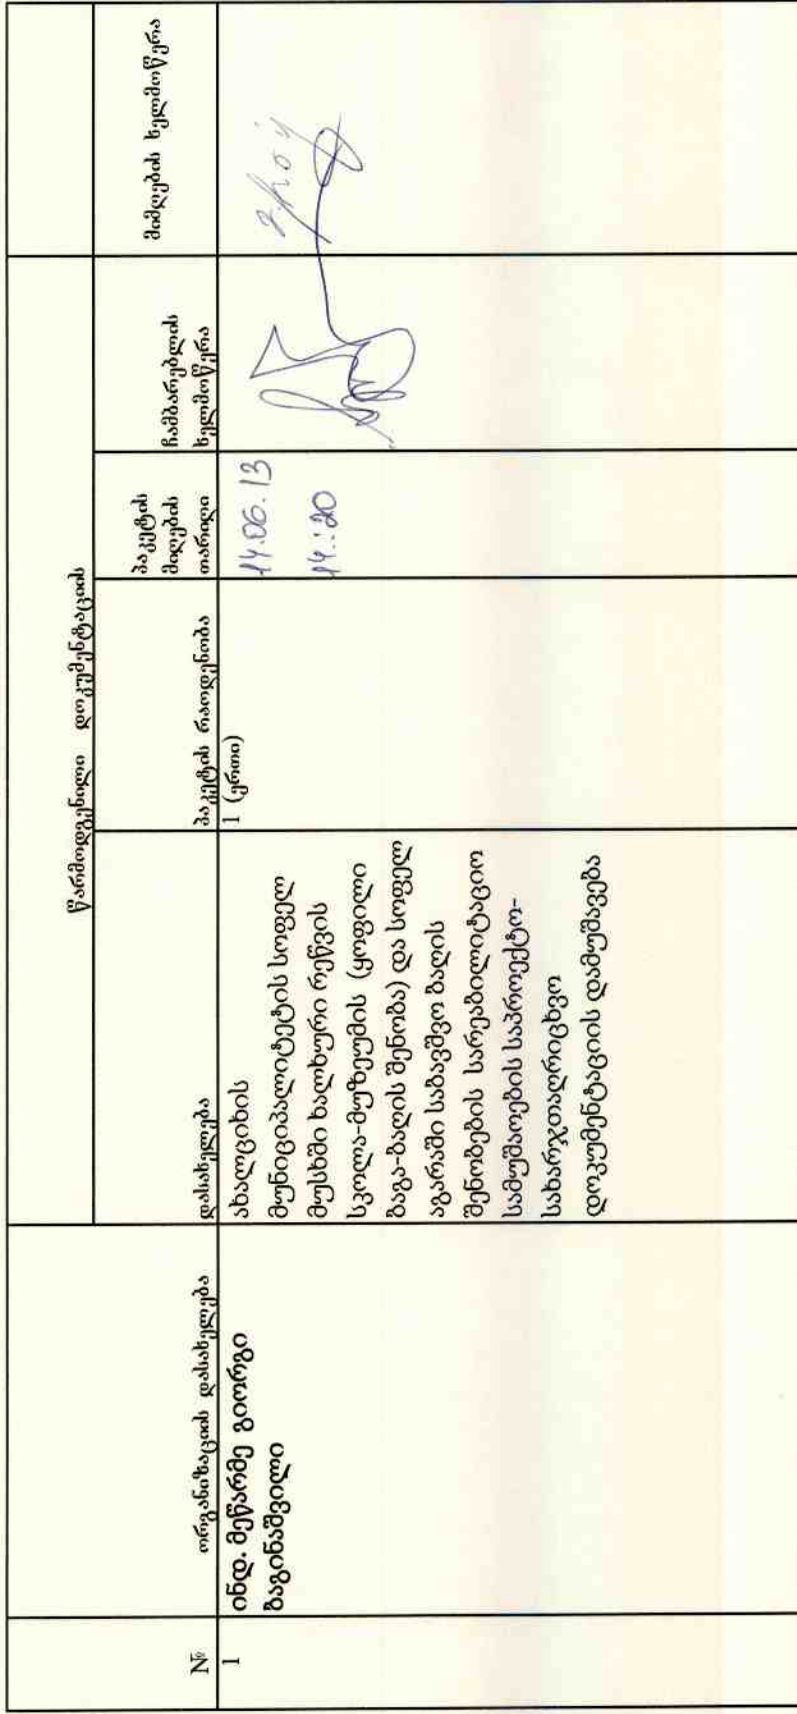 წარმოდგენილი დოკუმენტაციის
№
ორგანიზაციის დასახელება
დასახელება
პაკეტის რაოდენობა
პაკეტის
მიღების
თარიღი
ჩამბარებლის
ხელმოწერა
მიმღების ხელმოწერა
1
ინდ. მეწარმე გიორგი
ზაგინაშვილი
ახალციხის
მუნიციპალიტეტის სოფელ
მუსხში ხალხური რეწვის
სკოლა-მუზეუმის (ყოფილი
ბაგა-ბაღის შენობა) და სოფელ
აგარაში საბავშვო ბაღის
შენობების სარეაბილიტაციო
სამუშაოების საპროექტო-
სახარჯთაღრიცხვო
დოკუმენტაციის დამუშავება
1 (ერთი)
14.06.13
14:20